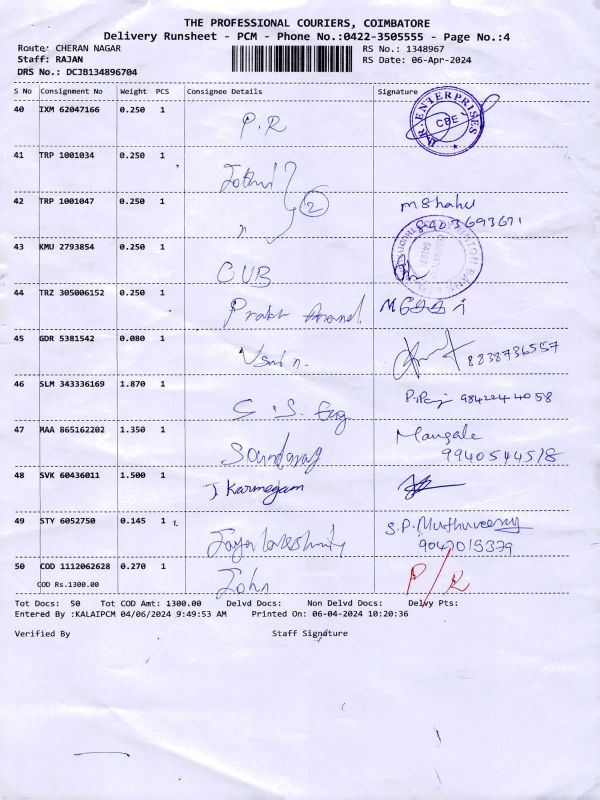 THE PROFESSIONAL COURIERS, COIMBATORE
Delivery Runsheet - PCM - Phone No.:0422-3505555 - Page No.:4
Route: CHERAN NAGAR RS No.: 1348967
Staff: RAJAN RS Date: 06-Apr-2024
DRS No.: DCJB134896704
S No Consignment No Weight PCS Consignee Details Signature
40 IXM 62047166 0.250 1 P.R ENTERPRISES CBE
41 TRP 1001034 0.250 1 Jothi
42 TRP 1001047 0.250 1 " 2 m Shahu
8903693671
43 KMU 2793854 0.250 1 CUB
44 TRZ 305006152 0.250 1 Prabh Anand.
45 GDR 5381542 0.080 1 8838736557
46 SLM 343336169 1.870 1 9842244058
47 MAA 865162202 1.350 1 Mangale
9940544518
48 SVK 60436011 1.500 1 J Karmegam
49 STY 6052750 0.145 1 Jayalakshmi S.P. Muthuveeray
9047015379
50 COD 1112062628 0.270 1 John P/R
COD Rs.1300.00
Tot Docs: 50 Tot COD Amt: 1300.00 Delvd Docs: Non Delvd Docs: Delvy Pts:
Entered By :KALAIPCM 04/06/2024 9:49:53 AM Printed On: 06-04-2024 10:20:36
Verified By Staff Signature